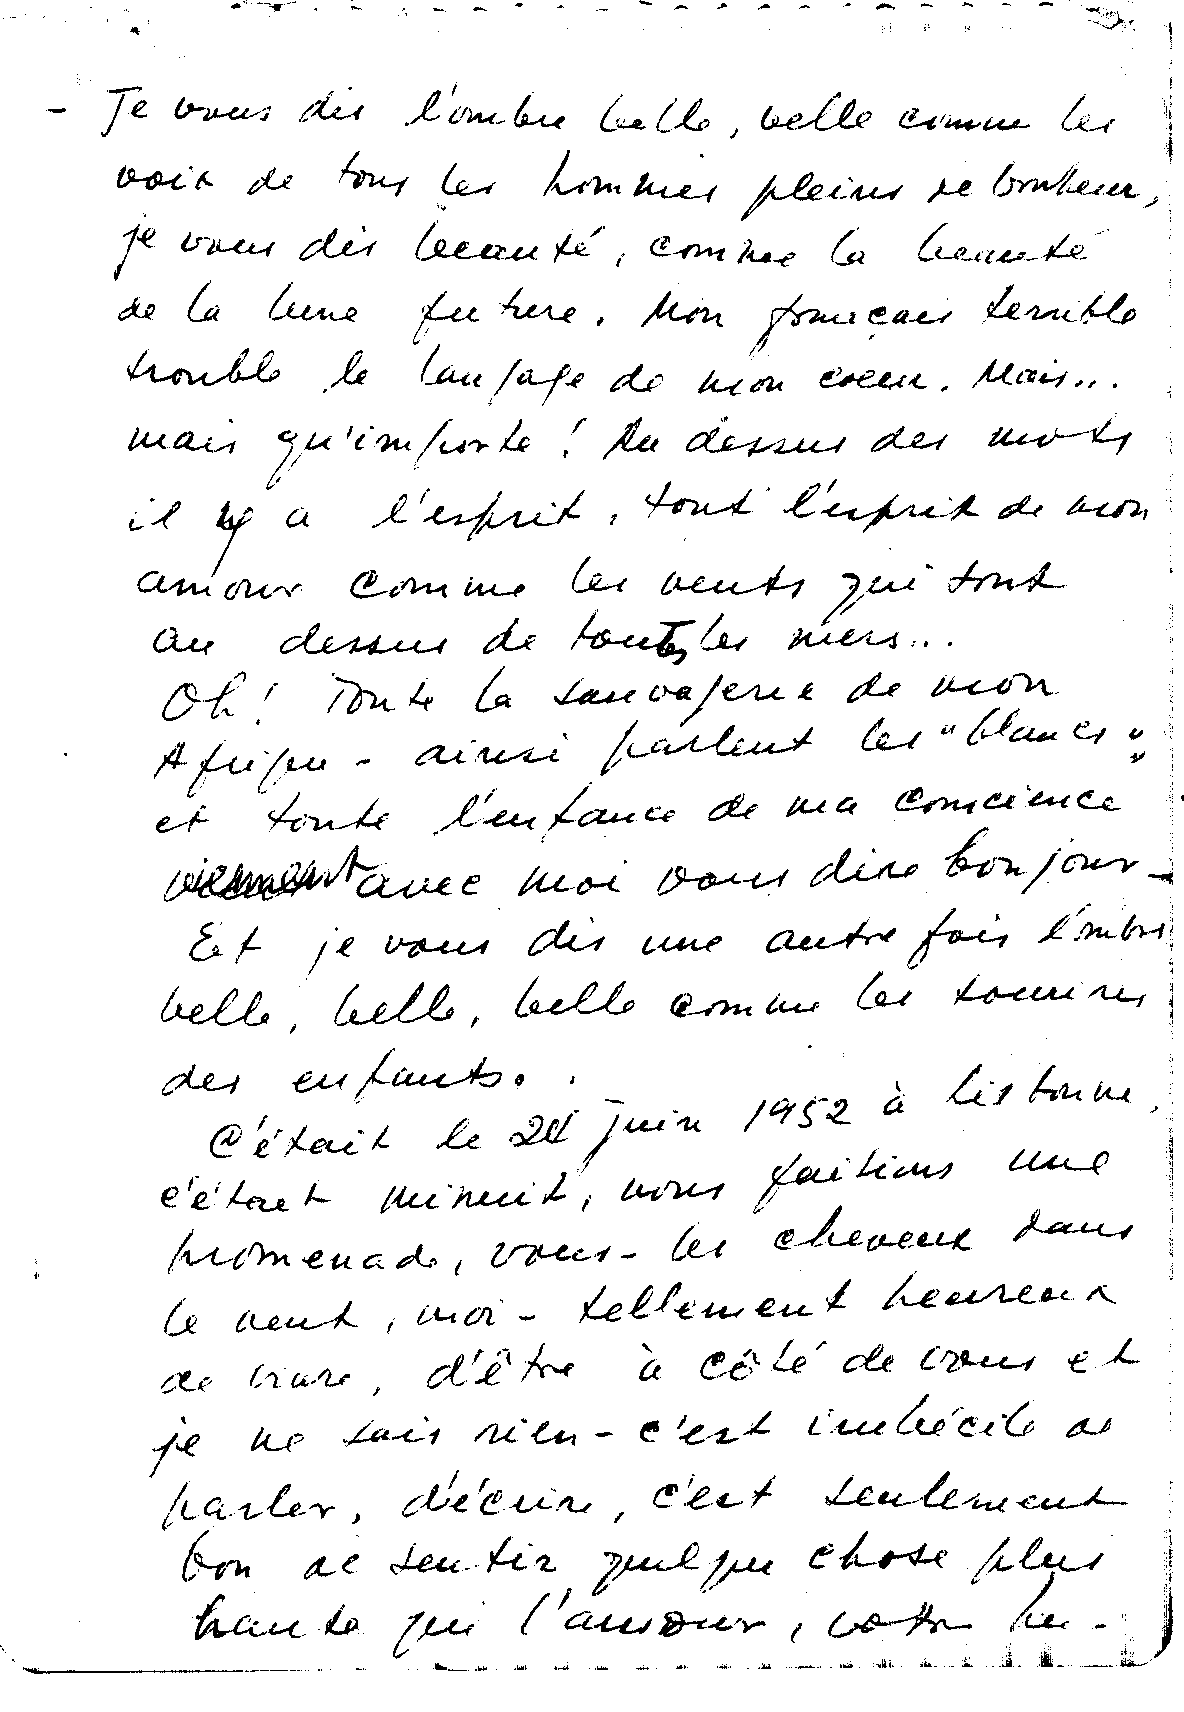 - Je vous dis l'ombre belle, belle comme les
voix de tous les hommes pleins de bonheur,
je vous dis beauté, comme la beauté
de la lune future. Mon français terrible
trouble le langage de mon coeur. Mais...
mais qu'importe ! Au dessus des mots
il y a l'esprit, tout l'esprit de mon
amour comme les vents qui sont
au dessus de toutes les mers...
Oh! Toute la sauvagerie de mon
Afrique - ainsi parlent les "blancs"
et toute l'enfance de ma conscience
viennent avec moi vous dire bonjour -
Et je vous dis une autre fois l'ombre
belle, belle, belle comme les sourires
des enfants.
C'était le 24 juin 1952 à Lisbonne,
c'était minuit, nous faisions une
promenade, vous - les cheveux dans
le vent, moi - tellement heureux
de vivre, d'être à côté de vous et
je ne sais rien - c'est imbécile de
parler, d'écrire, c'est seulement
bon de sentir quelque chose plus
haute que l'amour, votre hu-